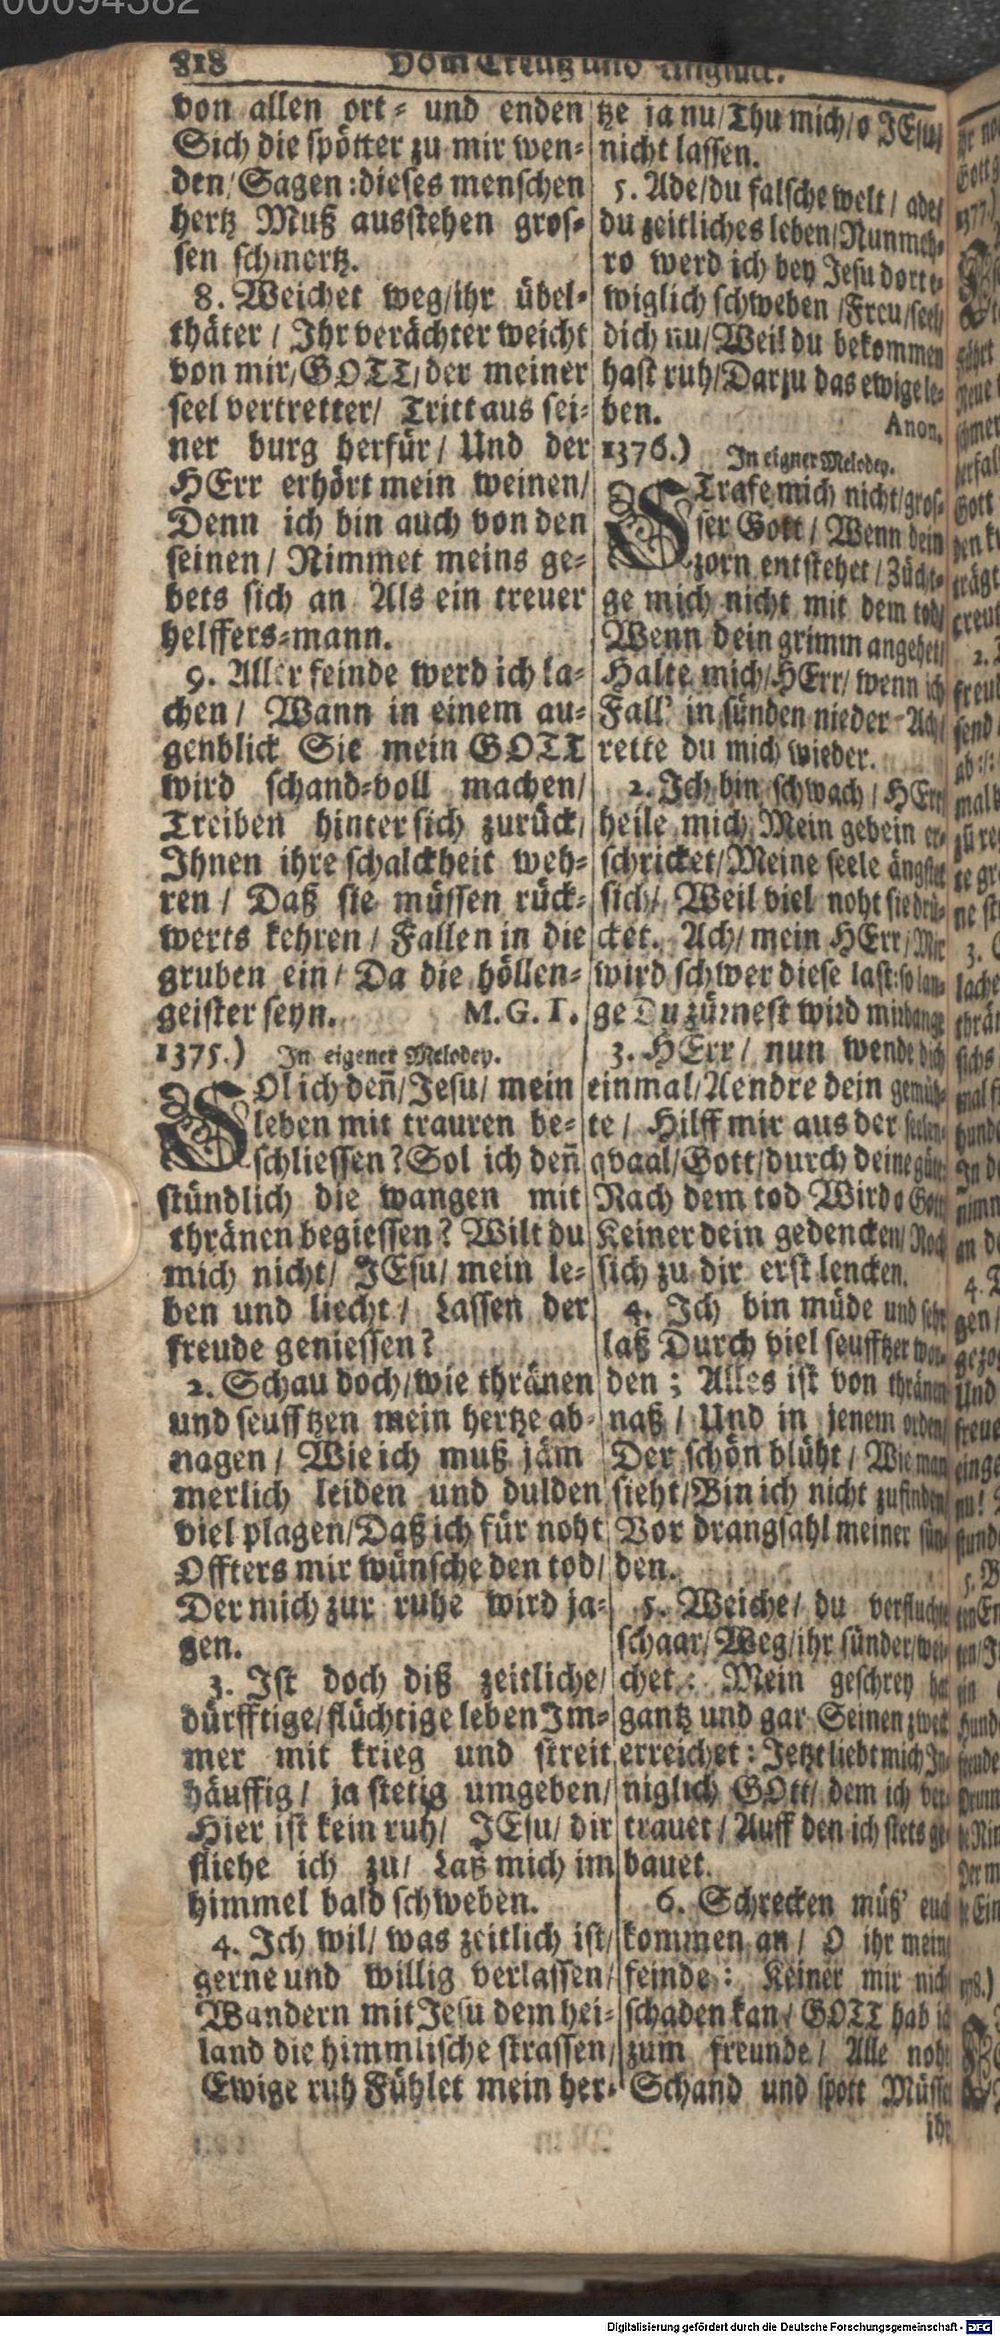 00094382
818 Vom Creutz und Unglück.
von allen ort- und enden
Sich die spötter zu mir wen-
den/ Sagen: dieses menschen
hertz Muß ausstehen gros-
sen schmertz.
8. Weichet weg/ihr übel-
thäter / Ihr verächter weicht
von mir/ GOTT/ der meiner
seel vertretter/ Tritt aus sei-
ner burg herfür/ Und der
HErr erhört mein weinen/
Denn ich bin auch von den
seinen/ Nimmet meins ge-
bets sich an Als ein treuer
helffers-mann.
9. Aller feinde werd ich la-
chen/ Wann in einem au-
genblick Sie mein GOTT
wird schand-voll machen/
Treiben hinter sich zurück/
Ihnen ihre schalckheit weh-
ren / Daß sie müssen rück-
werts kehren / Fallen in die
gruben ein/ Da die höllen-
geister seyn. M. G. I.
1375.) In eigener Melodey.
SOl ich deñ/Jesu/ mein
leben mit trauren be-
schliessen? Sol ich deñ
stündlich die wangen mit
thränen begiessen? Wilt du
mich nicht/ JEsu/ mein le-
ben und liecht/ Lassen der
freude geniessen?
2. Schau doch/wie thränen
und seufftzen mein hertze ab-
nagen / Wie ich muß jäm
merlich leiden und dulden
viel plagen/Daß ich für noht
Offters mir wünsche den tod/
Der mich zur ruhe wird ja-
gen.
3. Ist doch diß zeitliche/
dürfftige/flüchtige leben Im-
mer mit krieg und streit
häuffig/ ja stetig umgeben/
Hier ist kein ruh/ JEsu/ dir
fliehe ich zu/ Laß mich im
himmel bald schweben.
4. Ich wil/ was zeitlich ist/
gerne und willig verlassen/
Wandern mit Jesu dem hei-
land die himmlische strassen/
Ewige ruh Fühlet mein her-
tze ja nu/Thu mich/o JEsu/
nicht lassen.
5. Ade/du falsche welt/ ade/
du zeitliches leben/Nunmeh-
ro werd ich bey Jesu dort e-
wiglich schweben /Freu/seel/
dich nu/Weil du bekommen
hast ruh/Darzu das ewige le-
ben.
Anon.
1376.) In eigner Melodey.
STrafe mich nicht/gros-
ser Gott/ Wenn dein
zorn entstehet/ Züchti-
ge mich nicht mit dem tod/
Wenn dein grimm angehet/
Halte mich/HErr/ wenn ich
Fall' in sünden nieder Ach/
rette du mich wieder.
2. Ich bin schwach/ HErr
heile mich/ Mein gebein er-
schricket/Meine seele ängstet
sich/ Weil viel noht sie drü-
cket. Ach/ mein HErr/Mir
wird schwer diese last: so lan-
ge Du zürnest wird mir bange
3. HErr/ nun wende dich
einmal/Aendre dein gemüh-
te/ Hilff mir aus der seelen-
qvaal/Gott/durch deine güte:
Nach dem tod Wird o Gott
Keiner dein gedencken/ Noch
sich zu dir erst lencken.
4. Ich bin müde und sehr
laß Durch viel seufftzer wor-
den; Alles ist von thränen
naß / Und in jenem orden/
Der schön blüht / Wie man
sieht/Bin ich nicht zu finden/
Vor drangsahl meiner sün-
den.
5. Weiche/ du verfluchte
schaar/ Weg/ihr sünder/wei-
chet: Mein geschrey hat
gantz und gar Seinen zweck
erreichet: Jetzt liebt mich In-
niglich GOtt/ dem ich ver-
trauet/ Auff den ich stets ge-
bauet.
6. Schrecken müß' euch
kommen an/ O ihr meine
feinde: Keiner mir nicht
schaden kan/ GOTT hab ich
zum freunde/ Alle noht
Schand und spott Müsse
ihr
Digitalisierung gefördert durch die Deutsche Forschungsgemeinschaft - DFG